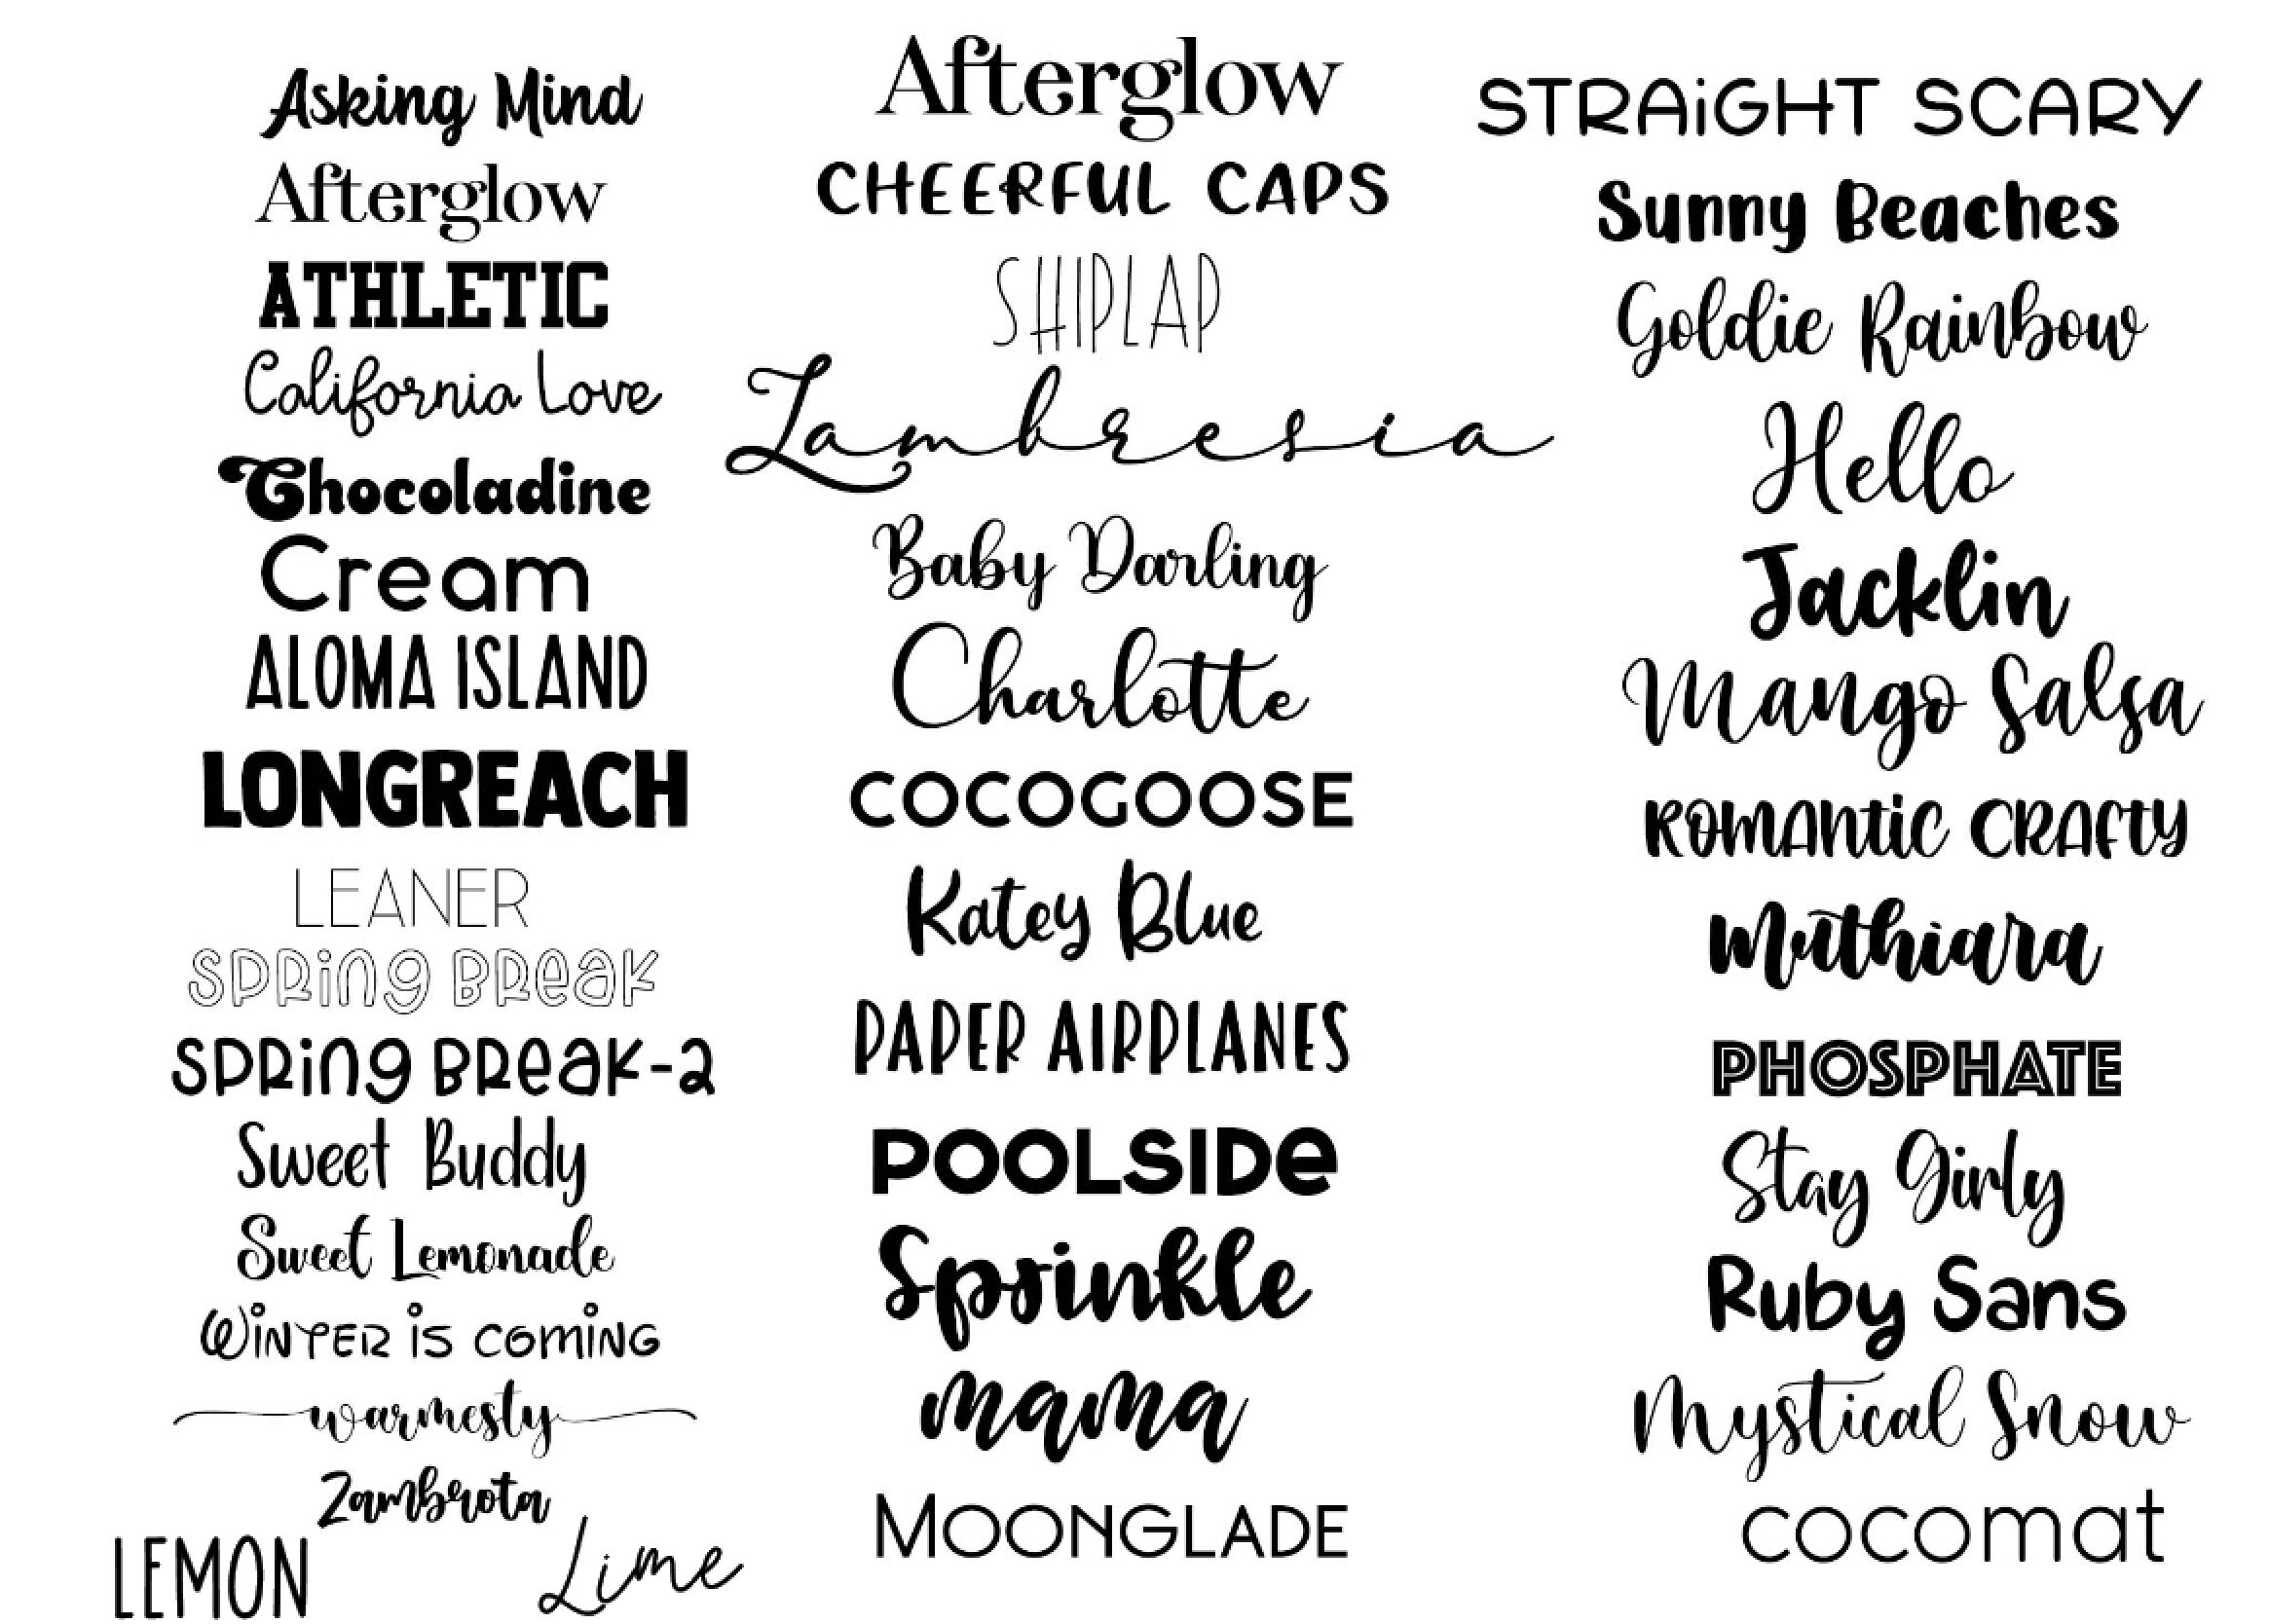 Asking Mind
Afterglow
ATHLETIC
California Love
Chocoladine
Cream
ALOMA ISLAND
LONGREACH
LEANER
SPRing BReak
SPRing BReak-2
Sweet Buddy
Sweet Lemonade
WiNTER iS COMiNG
warmesty
Zambrota
LEMON
Lime
Afterglow
CHEERFUL CAPS
SHIPLAP
Lambresia
Baby Darling
Charlotte
COCOGOOSE
Katey Blue
PAPER AIRPLANES
POOLSIDe
Sprinkle
mama
MOONGLADE
STRAiGHT SCARY
Sunny Beaches
Goldie Rainbow
Hello
Jacklin
Mango Salsa
ROMAntic CRAfty
Muthiara
PHOSPHATE
Stay Girly
Ruby Sans
Mystical Snow
cocomat